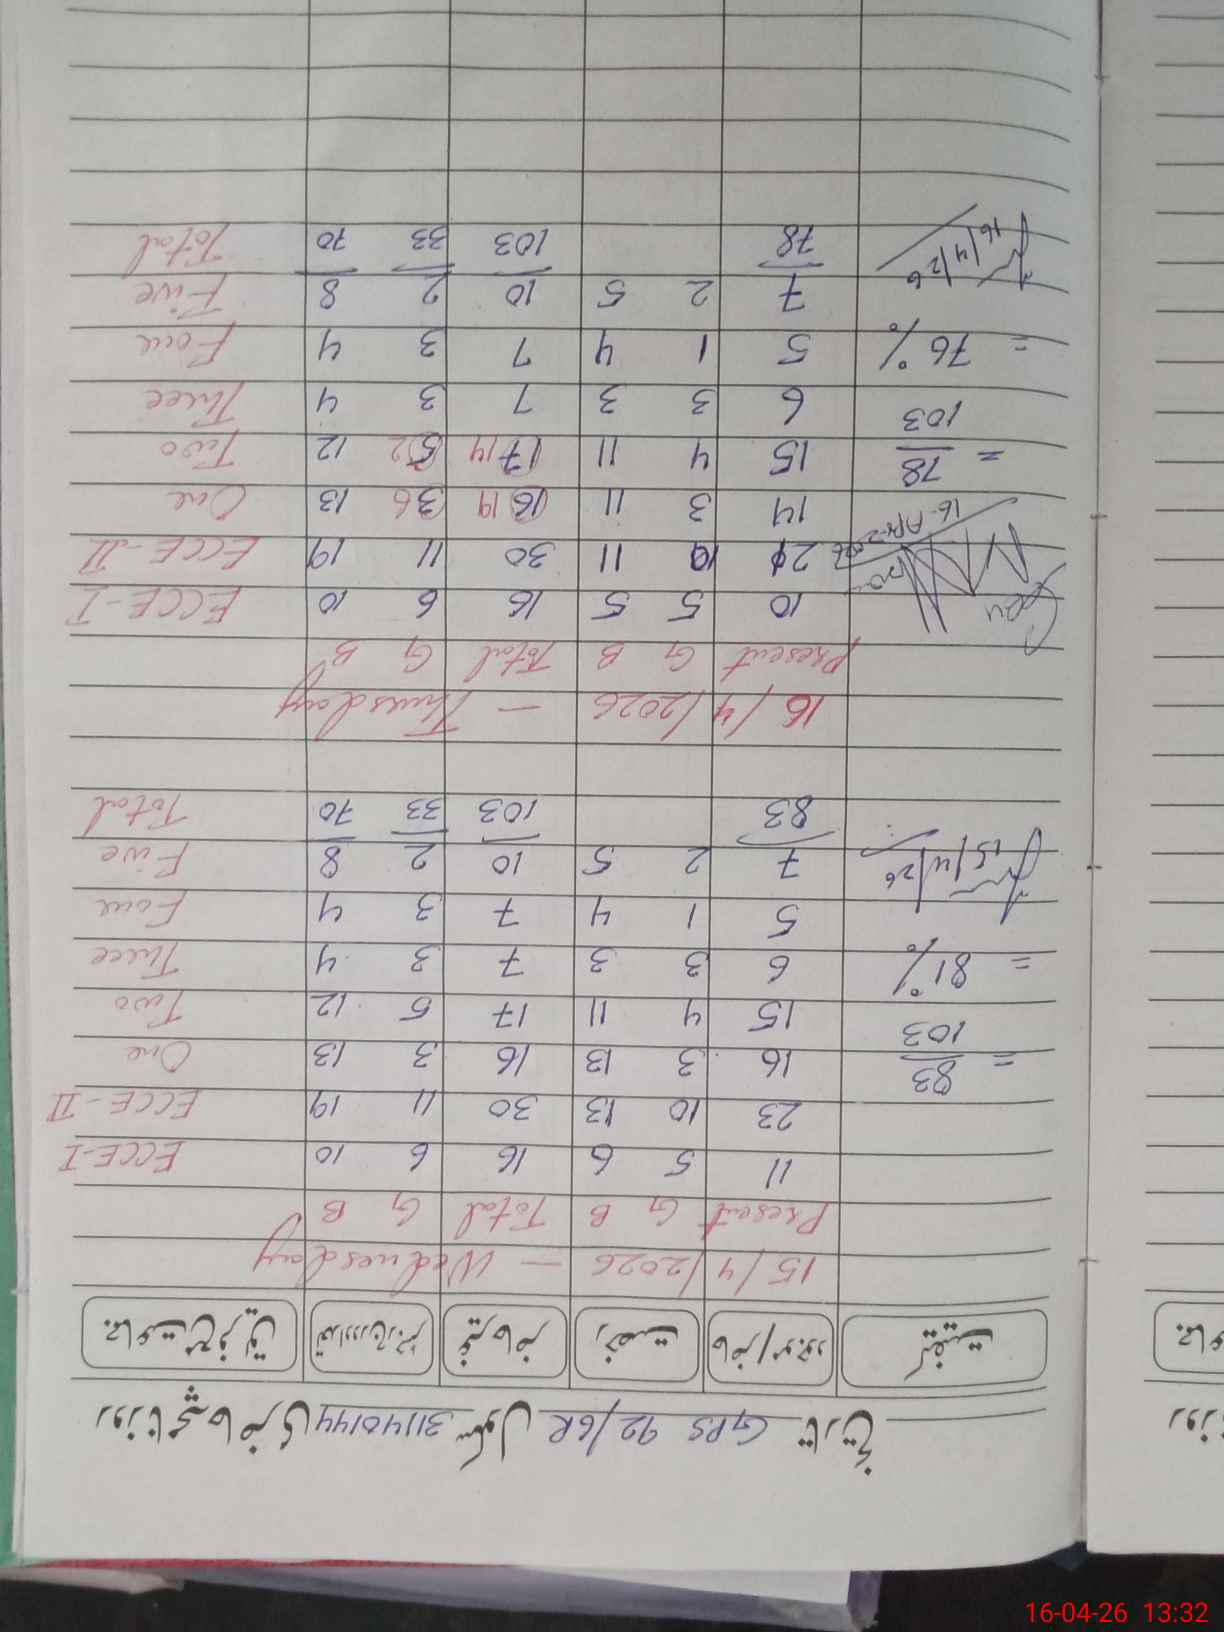 روزنامچہ حاضری 31140144 سکول GPS 92/6R تاریخ
جماعت / فریق تعداد درج رجسٹر غیر حاضر رخصت حاضر / موجود کیفیت
15/4/2026 — Wednesday
Present G B Total G B
11 5 6 16 6 10 ECCE-I
23 10 13 30 11 19 ECCE-II
16 3 13 16 3 13 One
15 4 11 17 5 12 Two
6 3 3 7 3 4 Three
5 1 4 7 3 4 Four
7 2 5 10 2 8 Five
83 103 33 70 Total
= 83
103
= 81%
15/4/26
16/4/2026 — Thursday
Present G B Total G B
10 5 5 16 6 10 ECCE-I
21 10 11 30 11 19 ECCE-II
14 3 11 16 19 3 6 13 One
15 4 11 17 14 5 2 12 Two
6 3 3 7 3 4 Three
5 1 4 7 3 4 Four
7 2 5 10 2 8 Five
78 103 33 70 Total
16-Apr-2026
= 78
103
= 76%
16/4/26
جما
روز
16-04-26 13:32